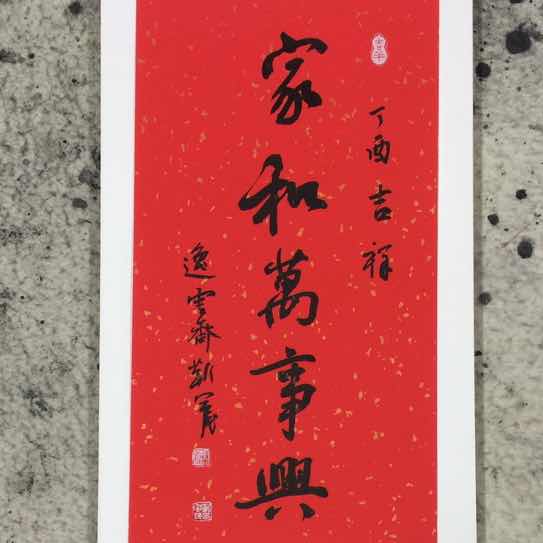 丁酉吉祥
家和萬事興
逸雲齋